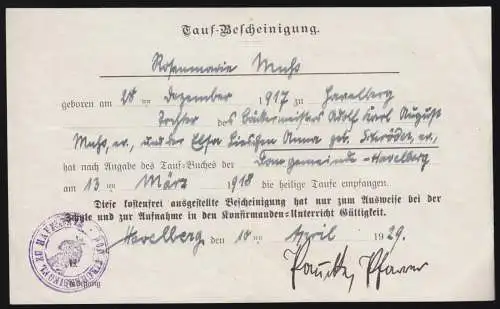 Tauf-Bescheinigung.
Rosenmarie Muhs
geboren am 28 ten Dezember 1917 zu Havelberg
Tochter des Bäckermeisters Adolf Karl August
Muhs, ev., und der Elsa Lieschen Anna geb. Schröder, ev.,
hat nach Angabe des Tauf-Buches der Domgemeinde-Havelberg
am 13 ten März 1918 die heilige Taufe empfangen.
Diese kostenfrei ausgestellte Bescheinigung hat nur zum Ausweise bei der
Schule und zur Aufnahme in den Konfirmanden-Unterricht Gültigkeit.
Havelberg, den 10 ten April 1929.
Pfarrer